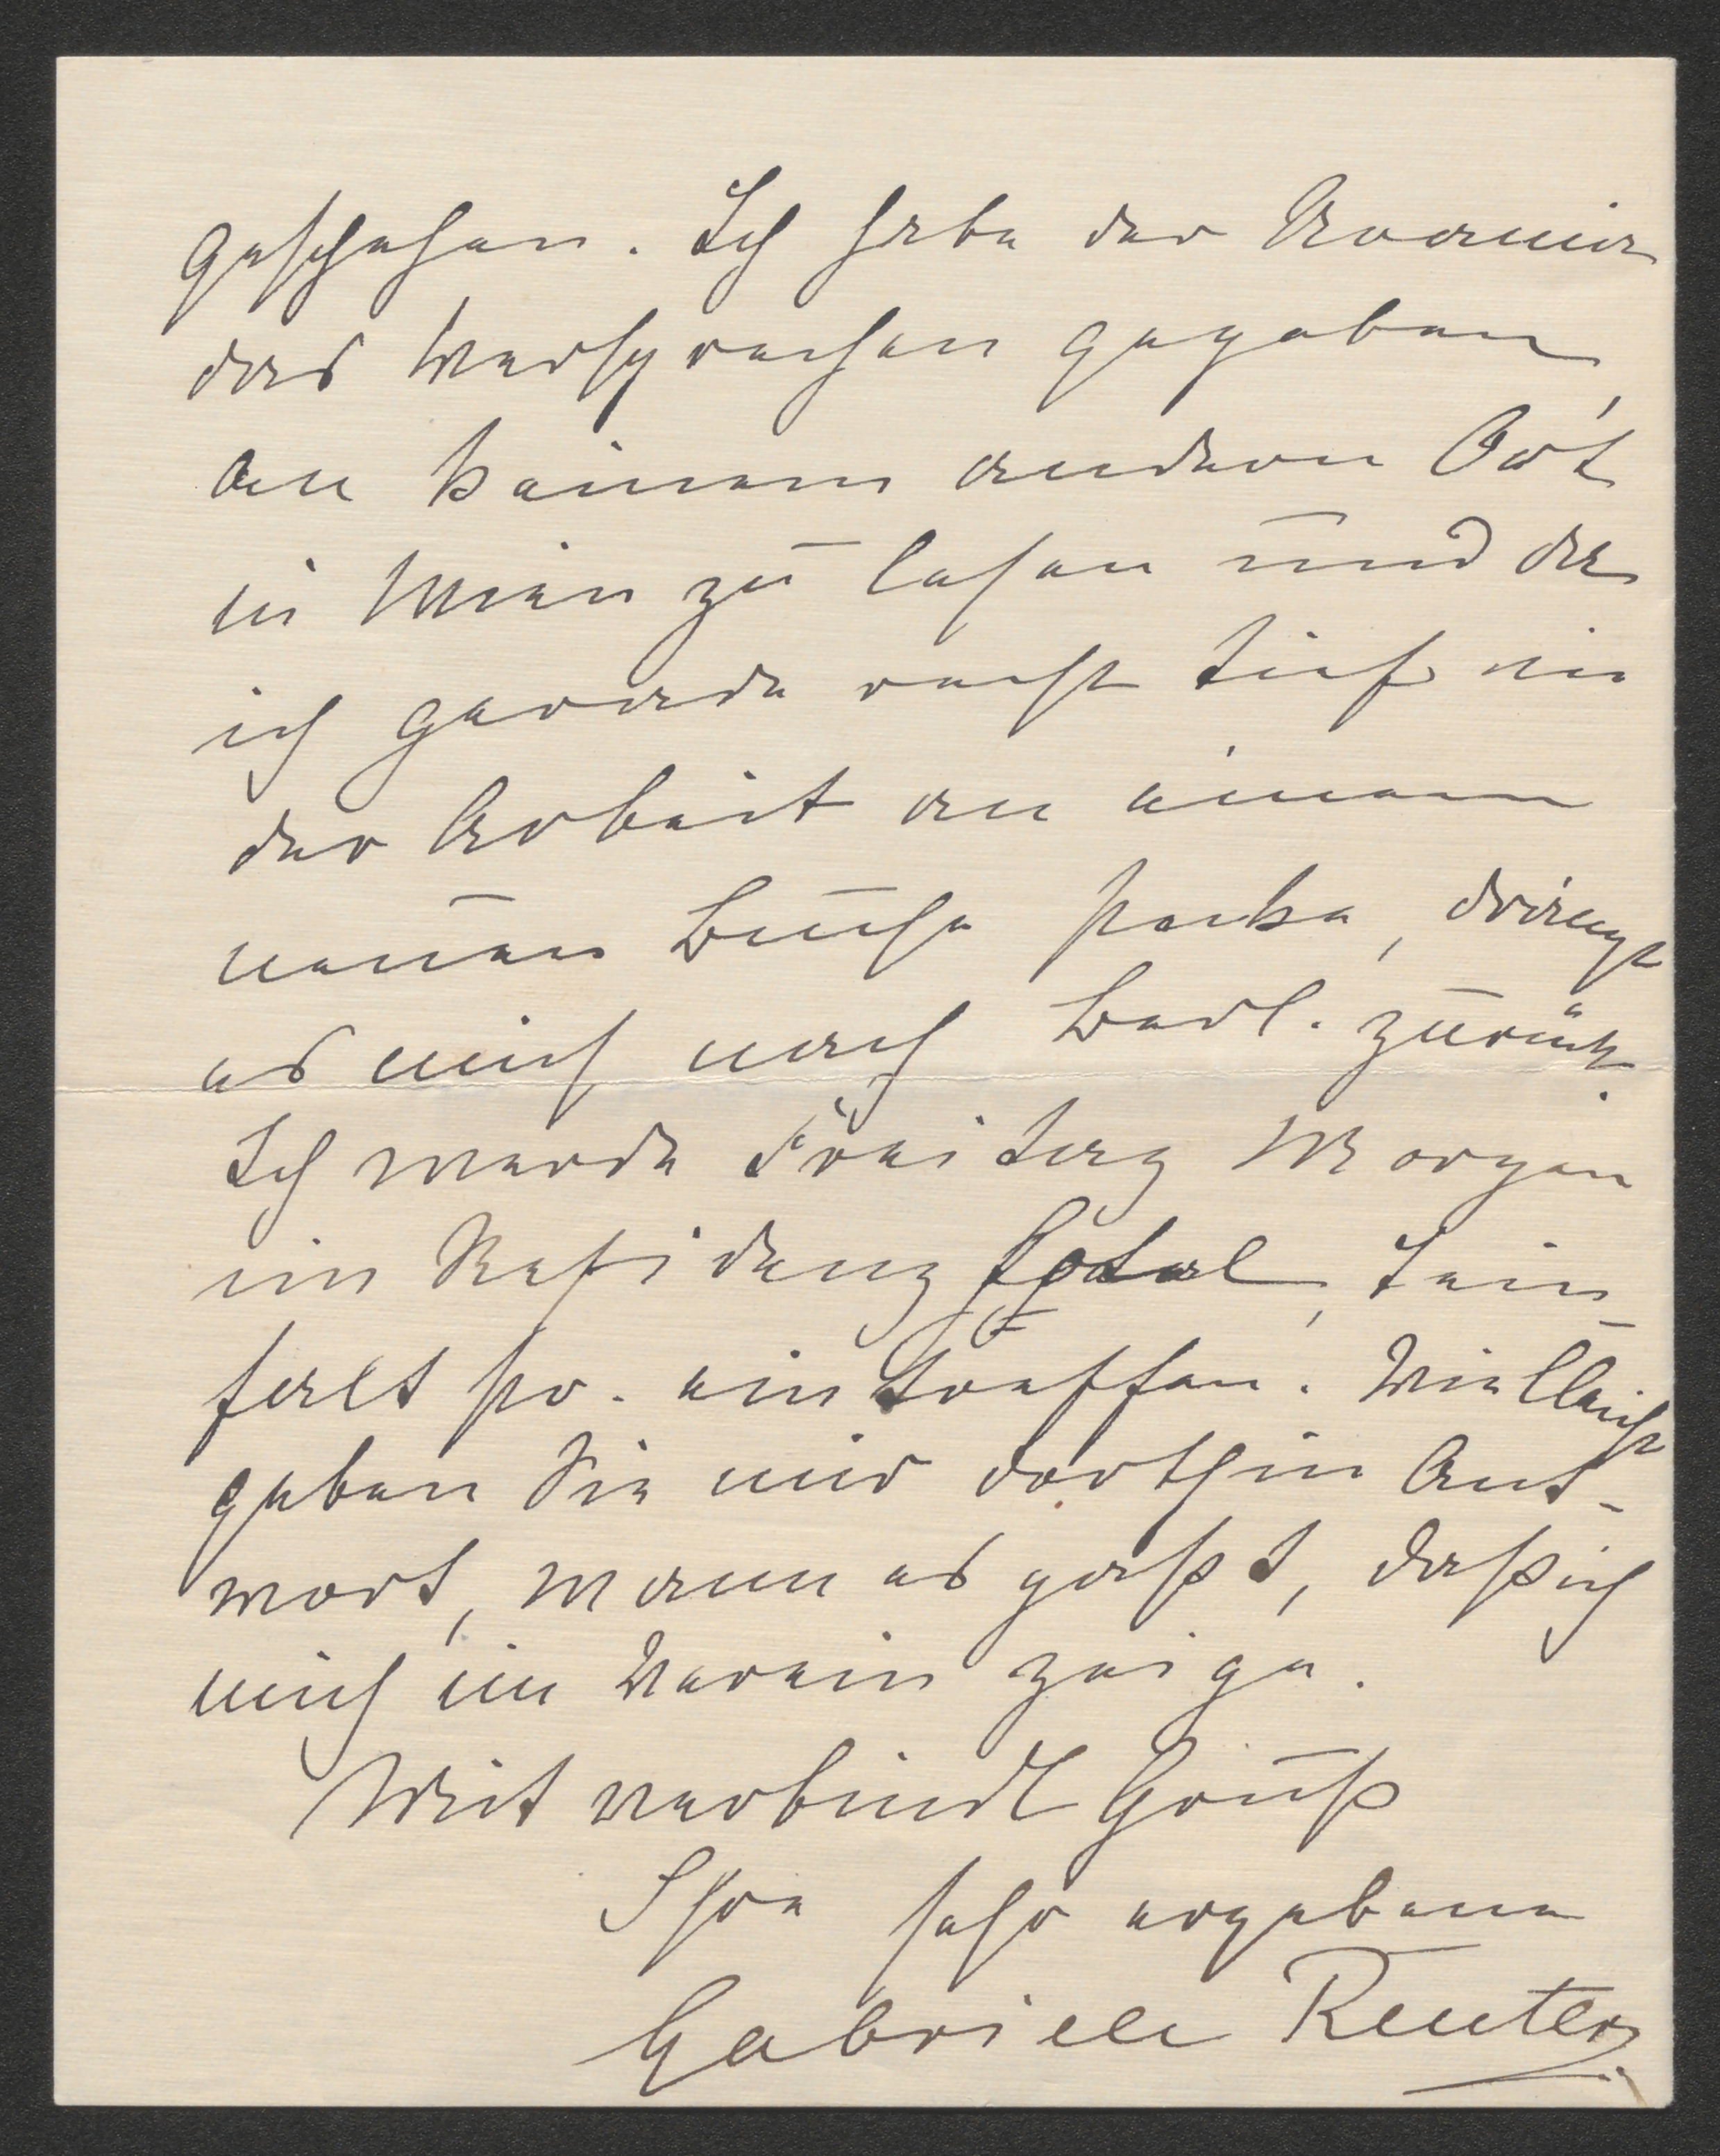 geschehen. Ich habe der Urania
das Versprechen gegeben,
an keinem andern Ort
in Wien zu lesen und da
ich gerade recht tief in
der Arbeit an einem
neuen Buche stecke, drängt
es mich nach Berl. zurück.
Ich werde Freitag Morgen
im Residenz Hotel, Tein-
faltstr. eintreffen. Vielleicht
geben Sie mir dorthin Ant-
wort, wann es paßt, daß ich
mich im Verein zeige.
Mit verbindl Gruß
Ihre sehr ergebene
Gabriele Reuter.